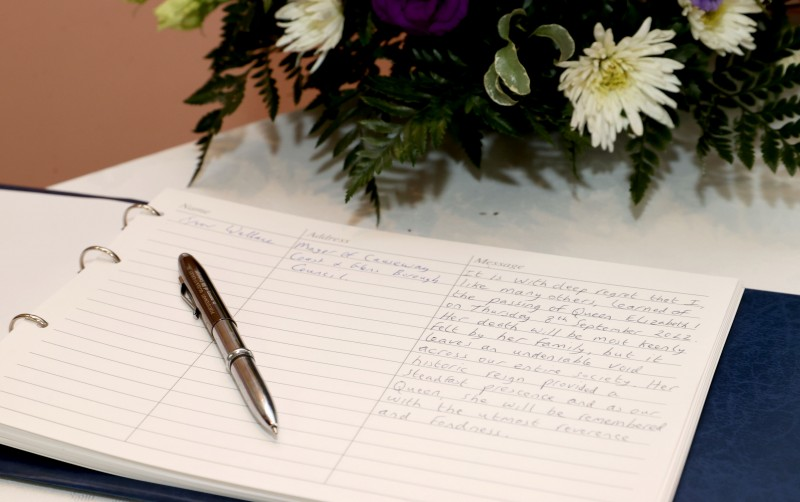 Name
Address
Message
Ivor Wallace
Mayor of Causeway
Coast & Glens Borough
Council
It is with deep regret that I,
like many others, learned of
the passing of Queen Elizabeth II
on Thursday 8th September 2022.
Her death will be most keenly
felt by her family, but it
leaves an undeniable void
across our entire society. Her
historic reign provided a
steadfast prescence and as our
Queen, she will be remembered
with the utmost reverence
and fondness.